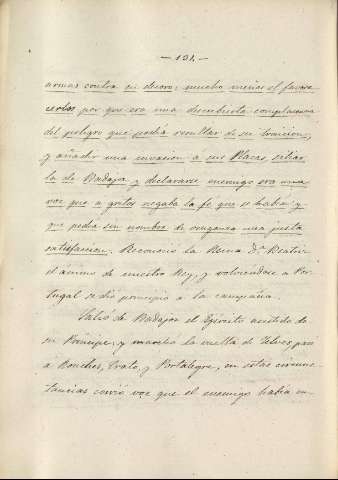 — 131. —
armas contra su decoro; mucho menos el favore-
cerlos por que era una descubierta complacencia
del peligro que podia resultar de su traicion,
y añadir una invasion a sus Plazas, sitiar
la de Badajoz y declararse enemigo era una
voz que a gritos negaba la fe que se habia y
que pedia sin nombre de venganza una justa
satisfaccion. Reconoció la Reina Dª Beatriz
el animo de nuestro Rey, y volviendose a Por-
tugal se dió principio a la campaña.
Salió de Badajoz el Ejército asistido de
su Principe, y marchó la vuelta de Yelves, pasó
a Ronches, Crato, y Portalegre, en estas circuns-
tancias corrió voz que el enemigo habia en-